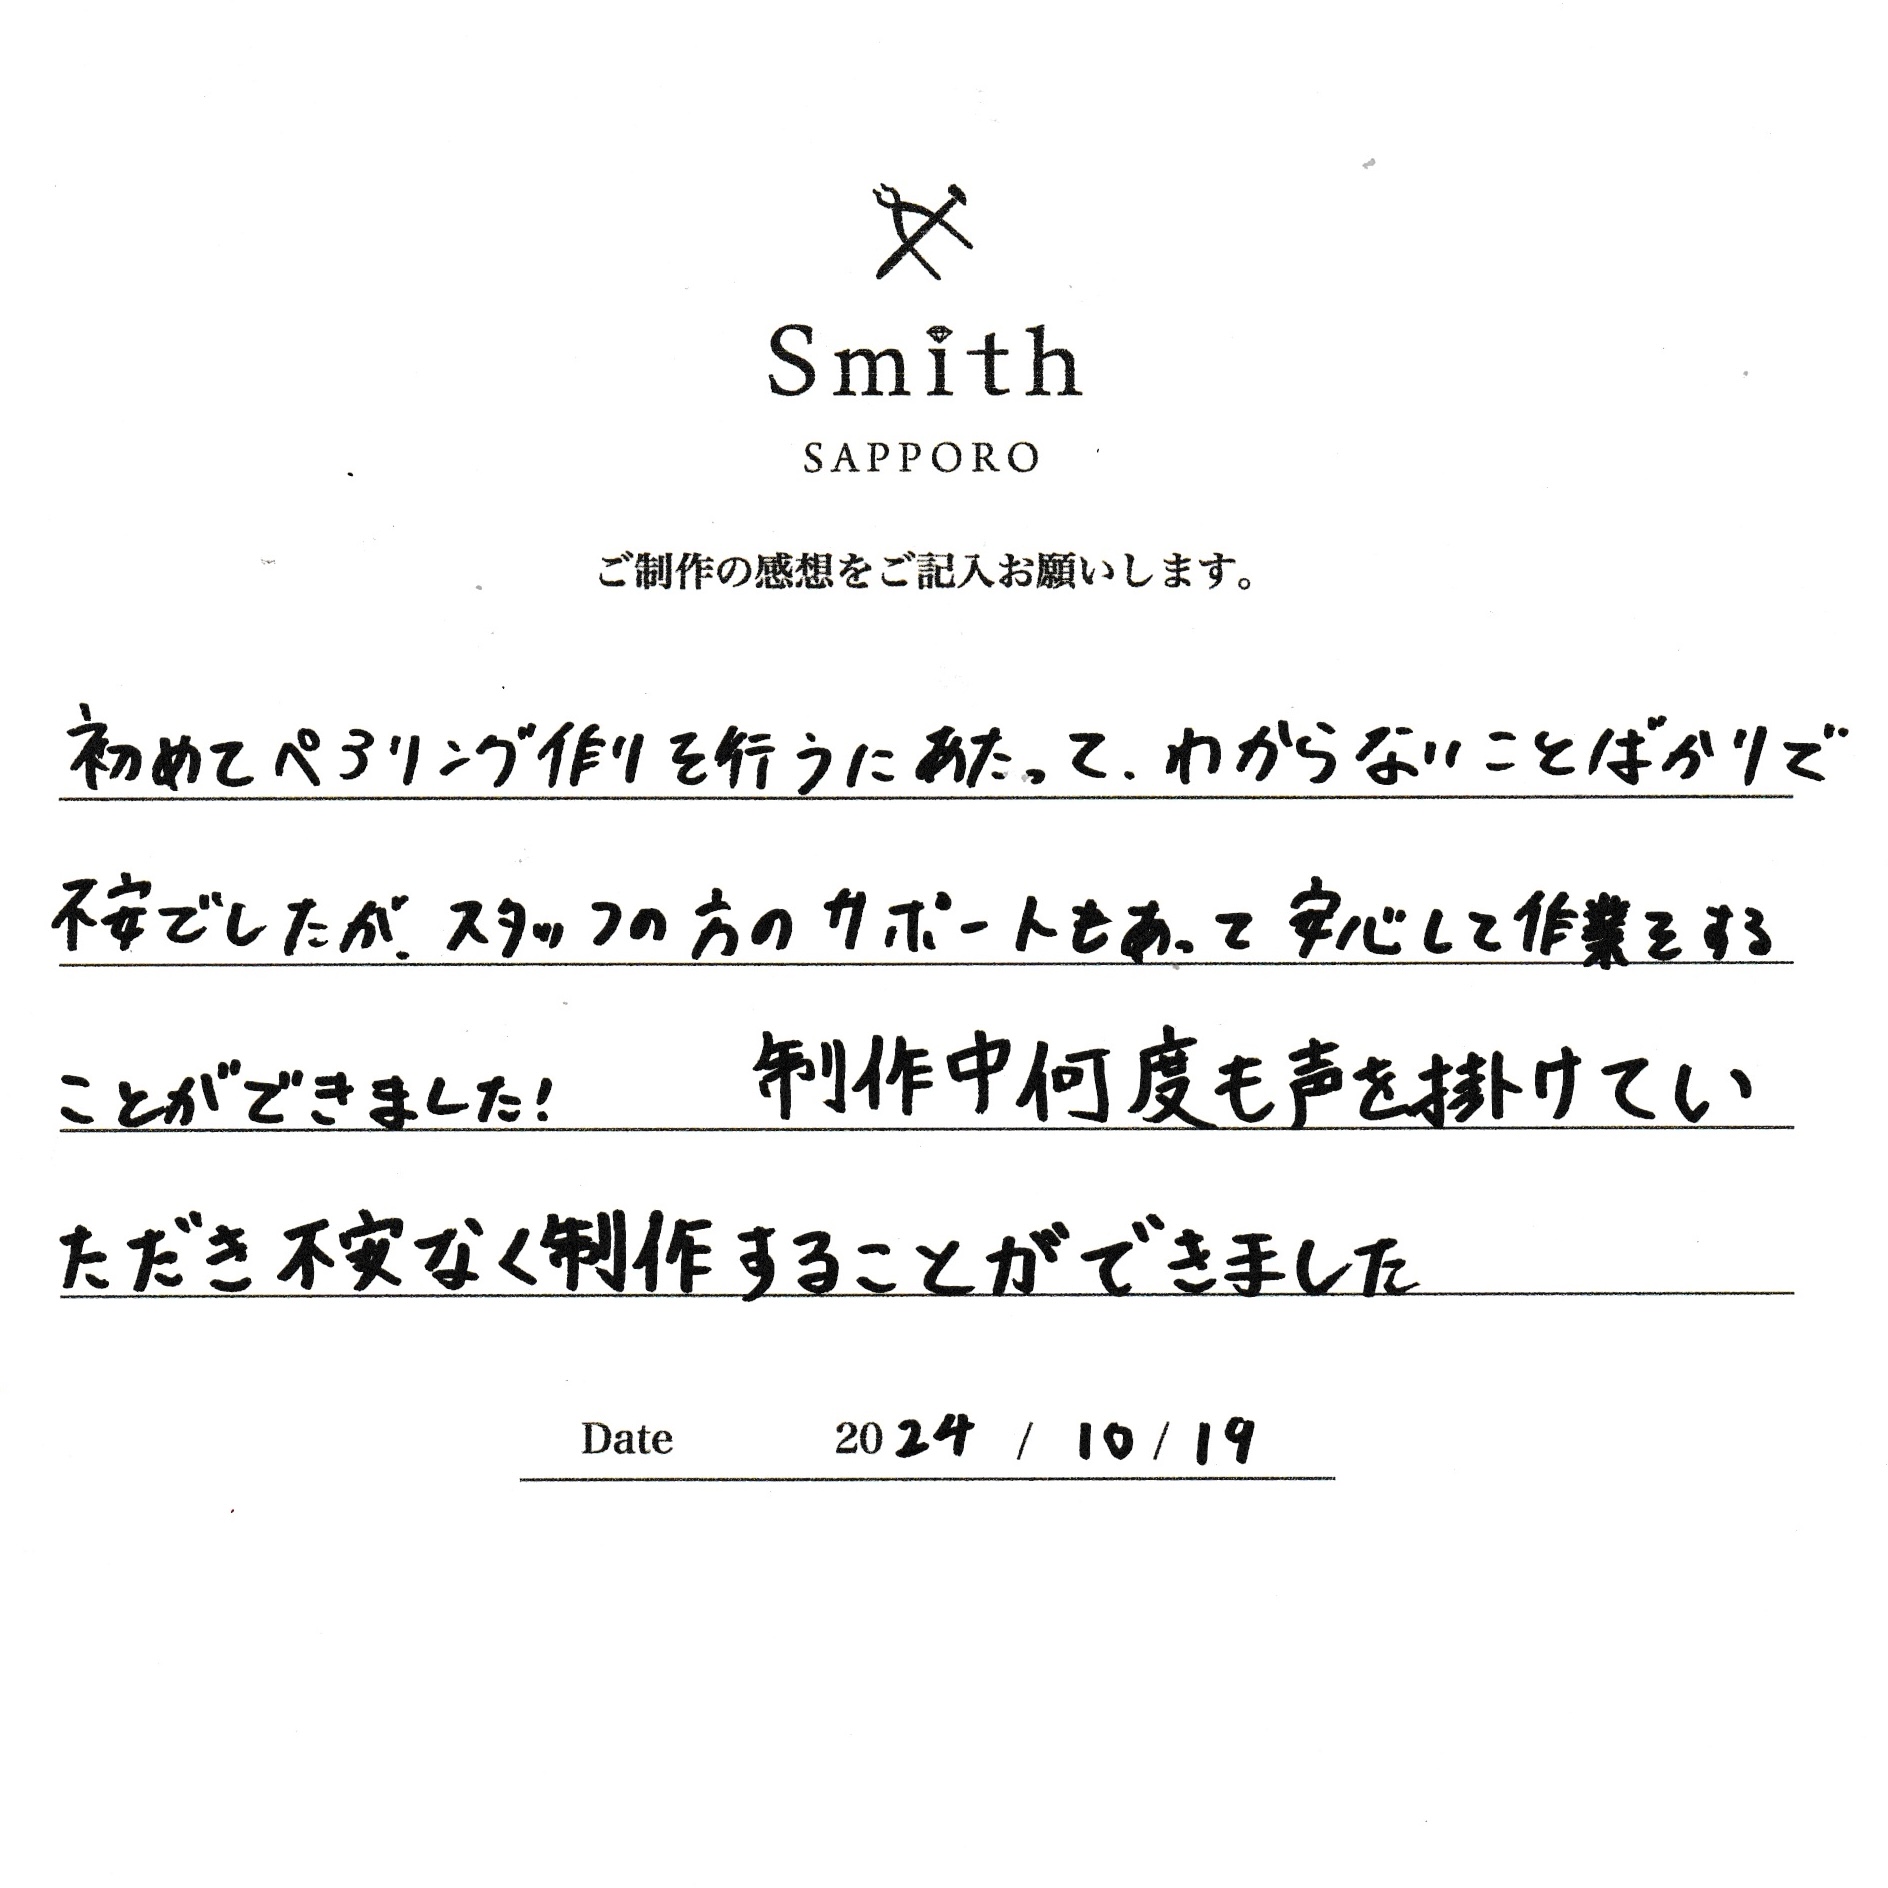 Smith
SAPPORO
ご制作の感想をご記入お願いします。
初めてペアリング作りを行うにあたって、わからないことばかりで
不安でしたが、スタッフの方のサポートもあって安心して作業をする
ことができました! 制作中何度も声を掛けてい
ただき不安なく制作することができました
Date 2024 / 10 / 19